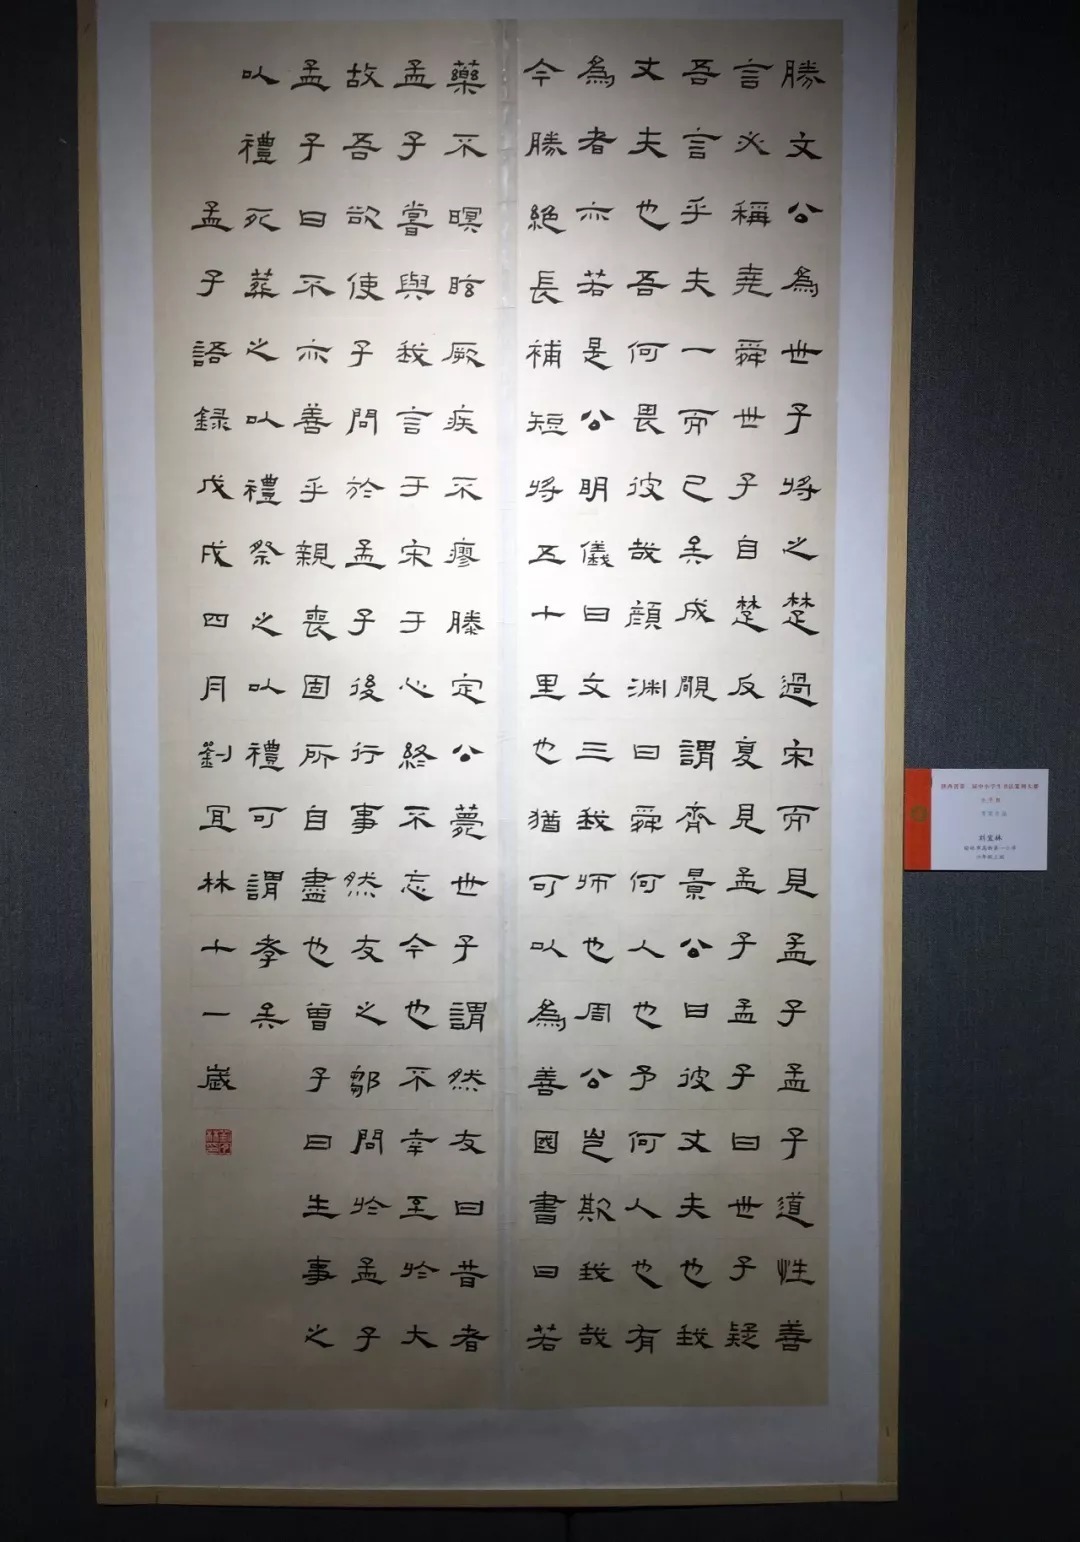 勝文公為世子將之楚過宋而見孟子孟子道性善
言必稱堯舜世子自楚反夏見孟子孟子曰世子疑
吾言乎夫一而已矣成覸謂齊景公曰彼丈夫也我
丈夫也吾何畏彼哉顏淵曰舜何人也予何人也有
為者亦若是公明儀曰文三我師也周公豈欺我哉
今勝絕長補短將五十里也猶可以為善國書曰若
藥不暝眩厥疾不瘳滕定公薨世子謂然友曰昔者
孟子嘗與我言于宋于心終不忘今也不幸至於大
故吾欲使子問於孟子後行事然友之鄒問於孟子
孟子曰不亦善乎親喪固所自盡也曾子曰生事之
以禮死葬之以禮祭之以禮可謂孝矣
孟子語錄戊戌四月劉宜林十一歲
刘宜林